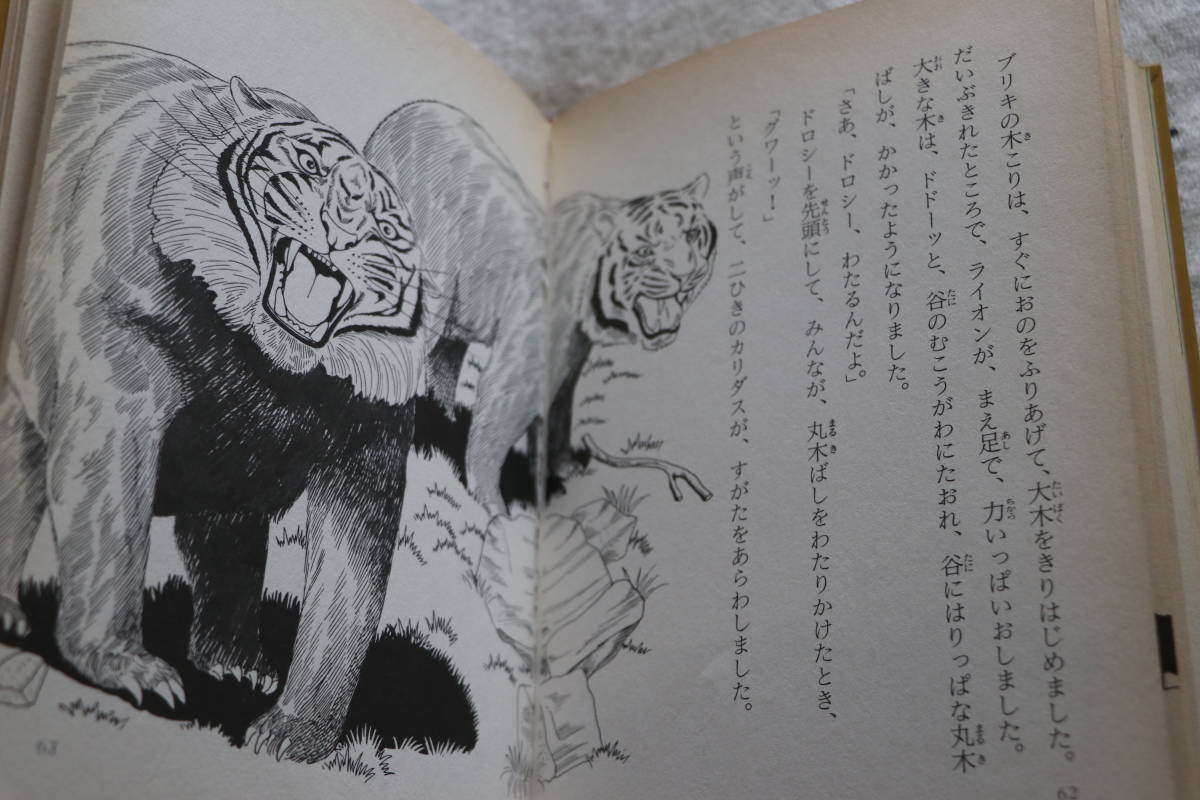 ブリキの木こりは、すぐにおのをふりあげて、大木をきりはじめました。
だいぶきれたところで、ライオンが、まえ足で、力いっぱいおしました。
大きな木は、ドドーッと、谷のむこうがわにたおれ、谷にはりっぱな丸木
ばしが、かかったようになりました。
「さあ、ドロシー、わたるんだよ。」
ドロシーを先頭にして、みんなが、丸木ばしをわたりかけたとき、
「グワーッ！」
という声がして、二ひきのカリダスが、すがたをあらわしました。
62
63